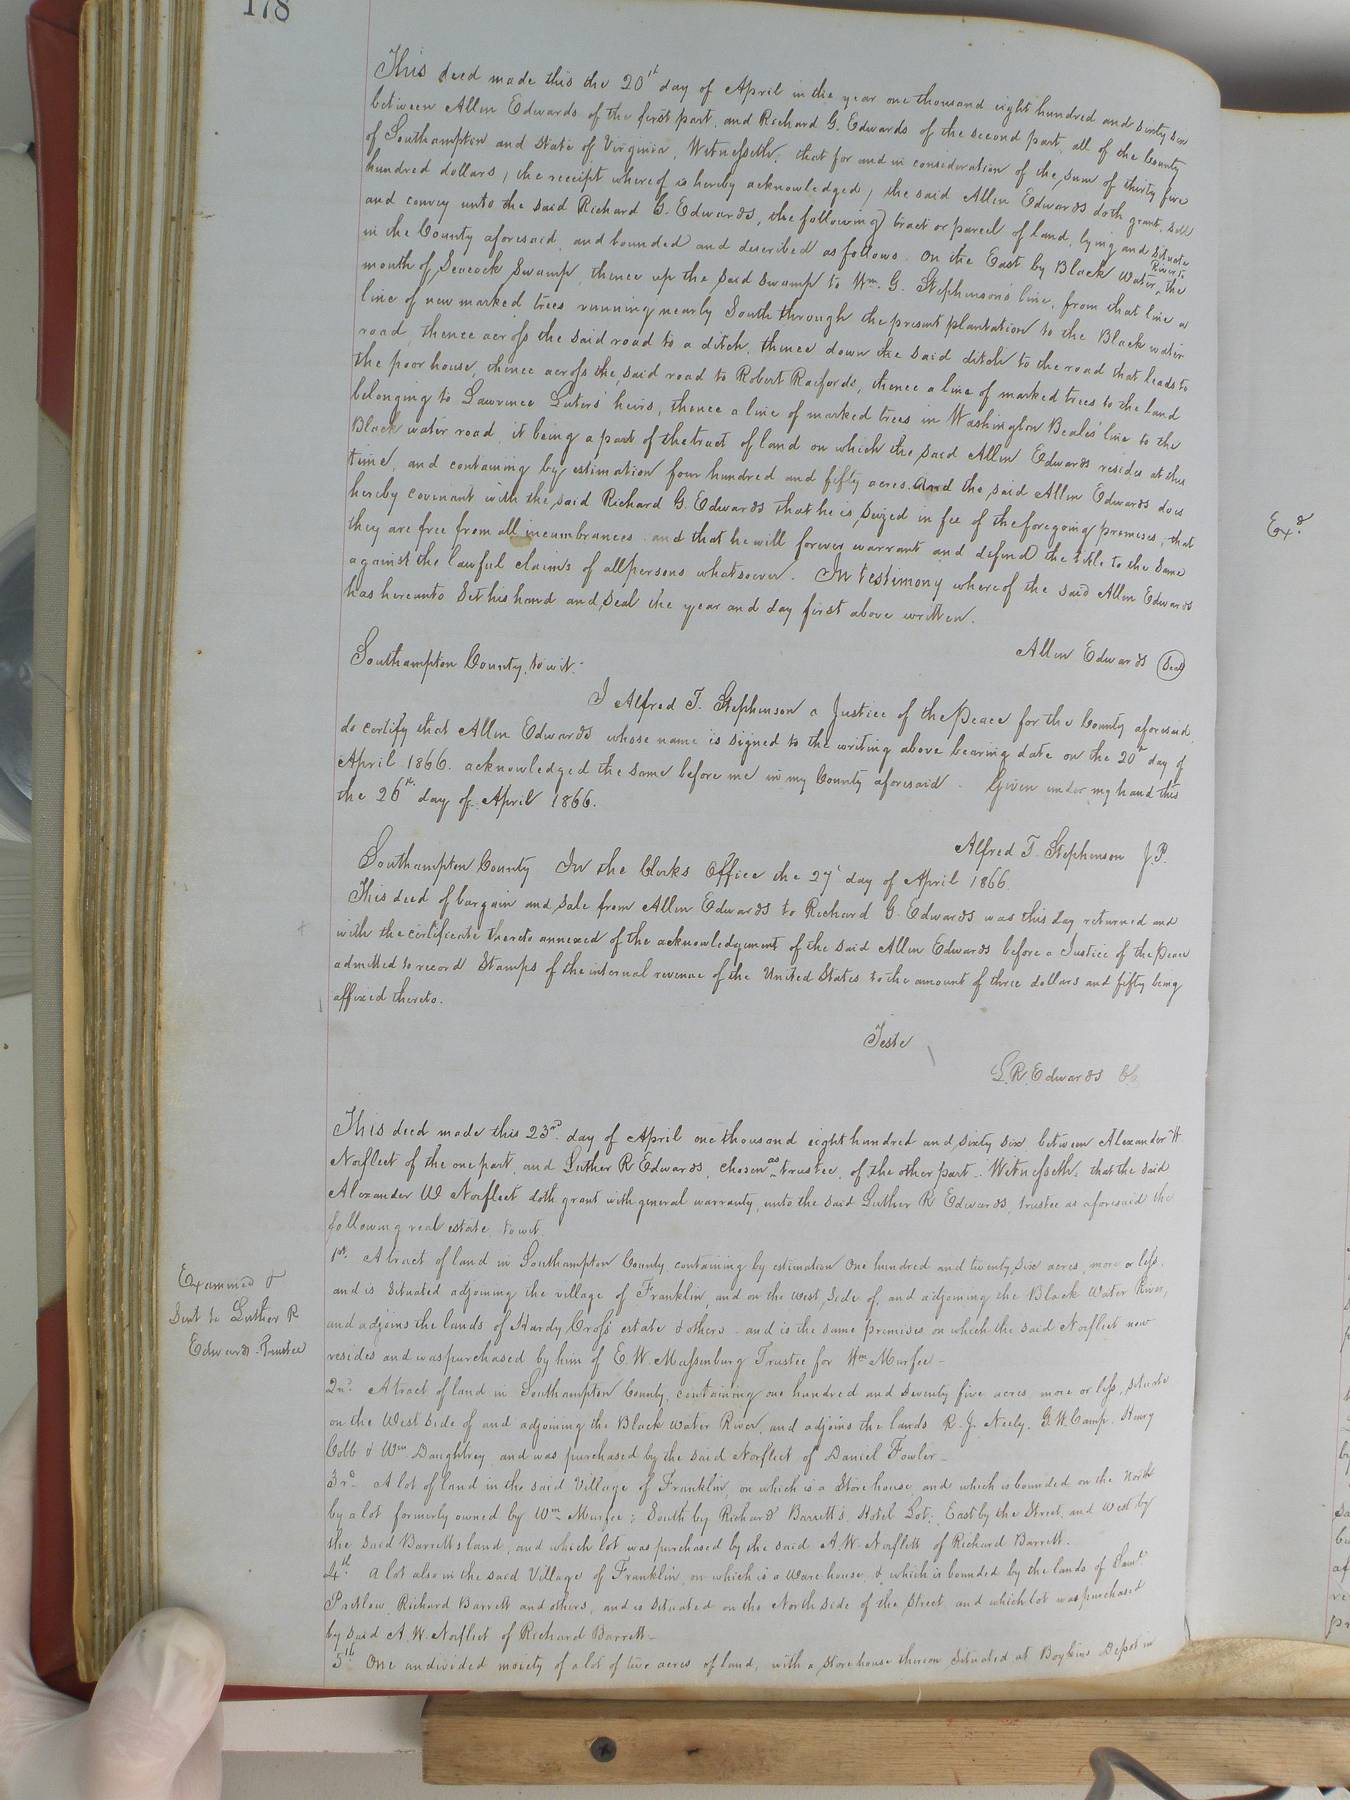 178
This deed made this the 20th day of April in the year one thousand eight hundred and sixty six
between Allen Edwards of the first part, and Richard G. Edwards of the second part, all of the County
of Southampton and State of Virginia, Witnesseth, that for and in consideration of the sum of thirty five
hundred dollars, the receipt whereof is hereby acknowledged, the said Allen Edwards doth grant, sell
and convey unto the said Richard G. Edwards, the following tract or parcel of land, lying and situate
in the County aforesaid, and bounded and described as follows. On the East by Black water River to the
mouth of Seacock Swamp, thence up the said swamp to Wm. G. Stephenson's line, from that line a
line of new marked trees running nearly South through the present plantation to the Black water
road, thence across the said road to a ditch, thence down the said ditch to the road that leads to
the poor house, thence across the said road to Robert Raifords, thence a line of marked trees to the land
belonging to Lawrence Luters' heirs, thence a line of marked trees in Washington Beales' line to the
Black water road, it being a part of the tract of land on which the said Allen Edwards resides at this
time, and containing by estimation four hundred and fifty acres. And the said Allen Edwards does
hereby covenant with the said Richard G. Edwards that he is seized in fee of the foregoing premises, that
they are free from all incumbrances and that he will forever warrant and defend the title to the same
against the lawful claims of all persons whatsoever. In testimony whereof the said Allen Edwards
has hereunto set his hand and seal the year and day first above written.
Allen Edwards Seal
Southampton County, to wit:
I Alfred T. Stephenson a Justice of the Peace for the County aforesaid,
do certify that Allen Edwards whose name is signed to the writing above bearing date on the 20th day of
April 1866. acknowledged the same before me in my County aforesaid. Given under my hand this
the 26th day of April 1866.
Alfred T. Stephenson J.P.
Southampton County In the Clerks Office the 27' day of April 1866.
This deed of bargain and sale from Allen Edwards to Richard G. Edwards was this day returned and
with the certificate thereto annexed of the acknowledgment of the said Allen Edwards before a Justice of the Peace
admitted to record Stamps of the internal revenue of the United States to the amount of three dollars and fifty being
affixed thereto.
Teste
L. R. Edwards
This deed made this 23rd. day of April one thousand eight hundred and sixty six between Alexander W
Norfleet of the one part, and Luther R Edwards, chosen as trustee, of the other part. Witnesseth, that the said
Alexander W Norfleet doth grant with general warranty, unto the said Luther R Edwards, trustee as aforesaid the
following real estate, to wit.
1st. A tract of land in Southampton County, containing by estimation One hundred and twenty six acres, more or less,
and is situated adjoining the village of Franklin, and on the West side of, and adjoining the Black Water River,
and adjoins the lands of Hardy Cross' estate & others. and is the same premises on which the said Norfleet now
resides and was purchased by him of E. W. Massenburg Trustee for Wm Murfee -
2nd. A tract of land in Southampton County, containing one hundred and seventy five acres more or less, situate
on the West side of and adjoining the Black Water River, and adjoins the lands R. J. Neely, G. W. Camp, Henry
Cobb & Wm Daughtrey, and was purchased by the said Norfleet of Daniel Fowler -
3rd. A lot of land in the said Village of Franklin, on which is a Store house and which is bounded on the North
by a lot formerly owned by Wm Murfee; South by Richard Barrett's Hotel Lot; East by the Street, and West by
the said Barretts land, and which lot was purchased by the said A. W. Norfleet of Richard Barrett.
4th. A lot also in the said Village of Franklin, on which is a ware house & which is bounded by the lands of Saml
Pretlow, Richard Barrett and others, and is situated on the North side of the Street, and which lot was purchased
by said A. W. Norfleet of Richard Barrett -
5th. One undivided moiety of a lot of two acres of land, with a store house thereon situated at Boykins Depot in
Examined &
Sent to Luther R
Edwards. Trustee
Exd.